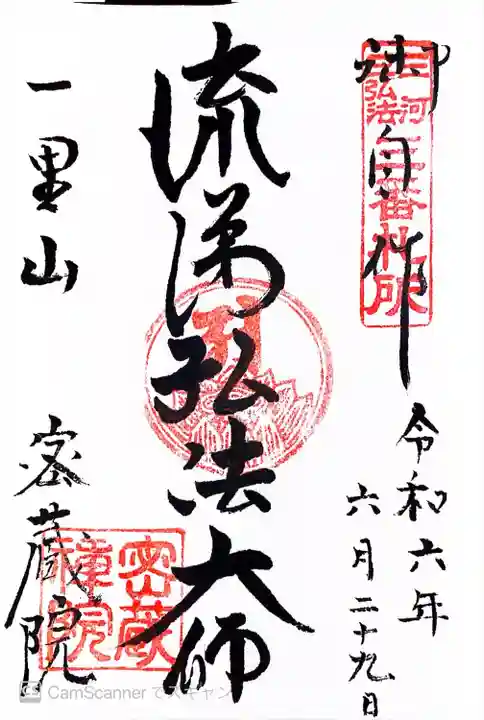 御自作
三河
弘法
三番札所
令和六年
六月二十九日
流涕弘法大師
一里山
密蔵院
密蔵
院
CamScanner でスキャン